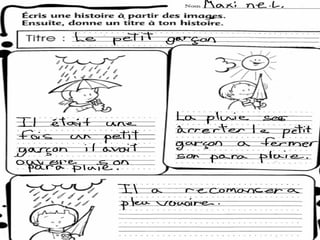 Nom Maxi ne.L.
Écris une histoire à partir des images.
Ensuite, donne un titre à ton histoire.
Titre : Le petit garçon
Il était une
fois un petit
garçon il avait
ouvere son
para pluie..
La pluie ses
arrerter le petit
garçon a fermer
son para pluie.
Il a recomancer a
pleu vouaire.